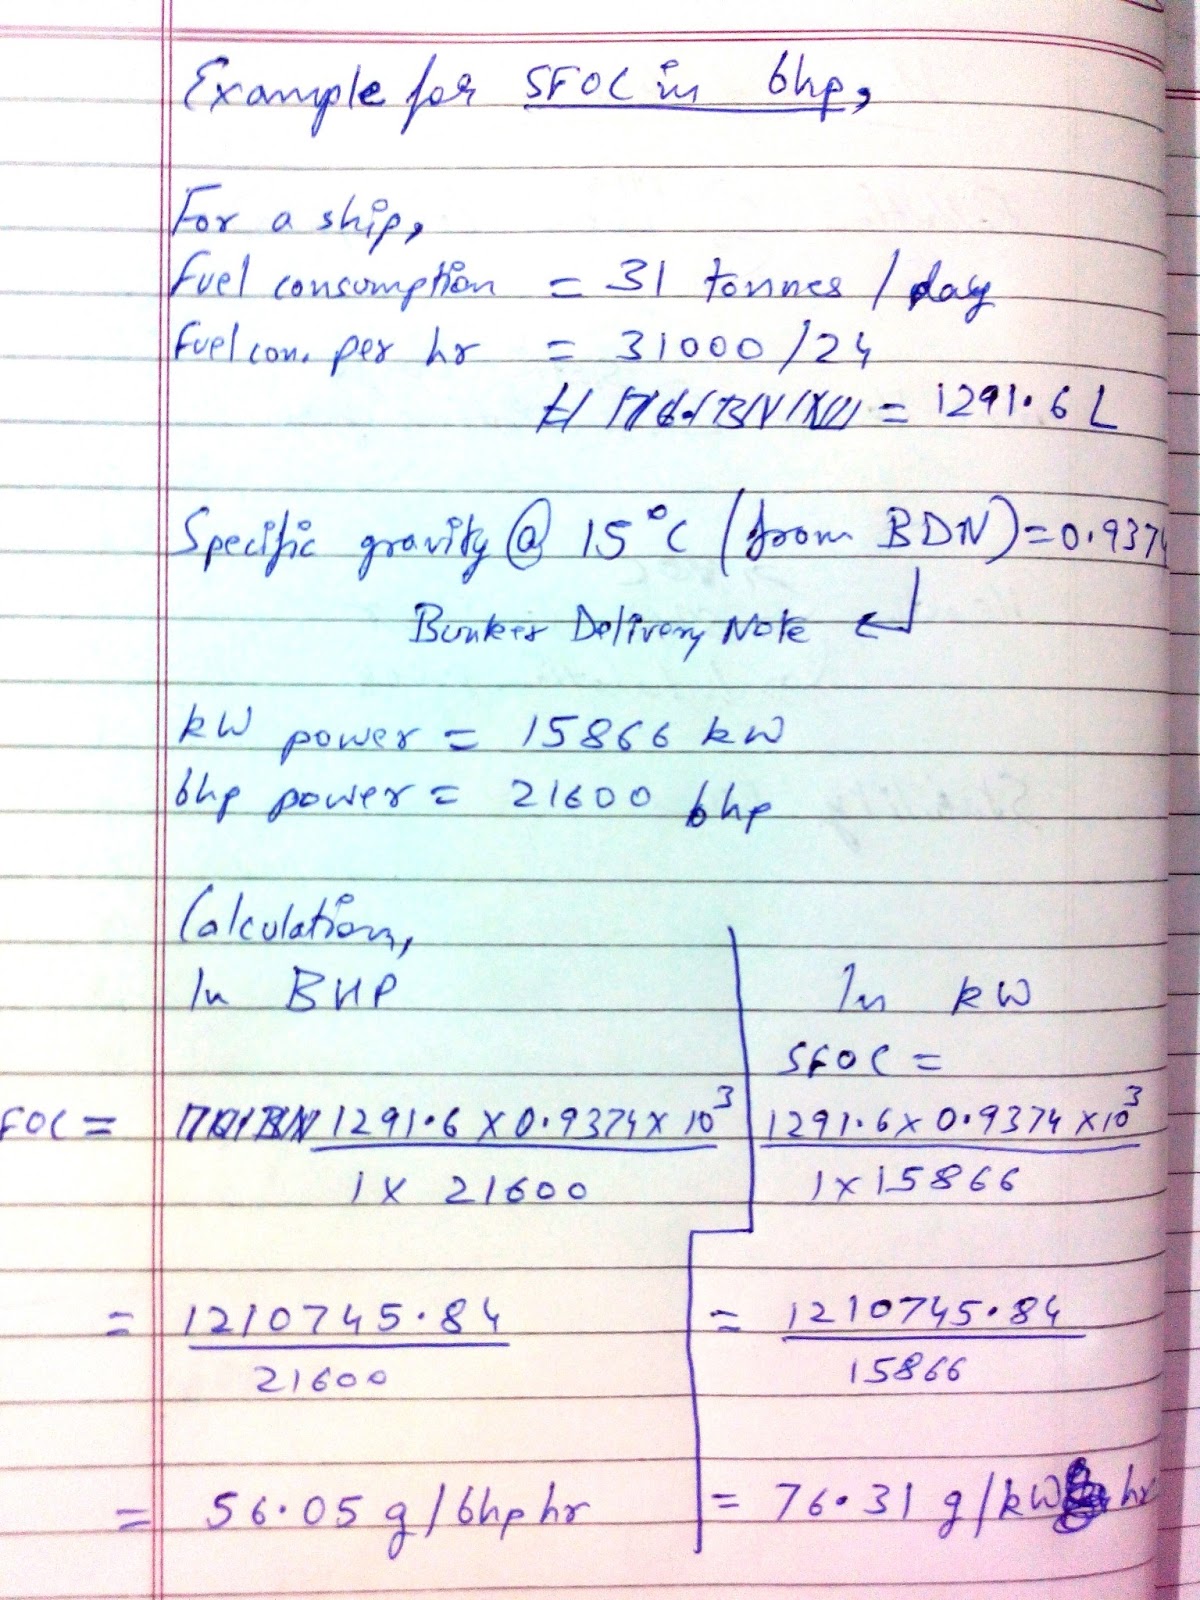 Example for SFOC in bhp,
For a ship,
Fuel consumption = 31 tonnes / day
Fuel con. per hr = 31000/24
= 1291.6 L
Specific gravity @ 15°C (from BDN) = 0.9374
Bunker Delivery Note
kW power = 15866 kW
bhp power = 21600 bhp
Calculation,
In BHP
FOC = 1291.6 X 0.9374 X 10³
1 X 21600
= 1210745.84
21600
= 56.05 g/bhp hr
In kW
SFOC =
1291.6 X 0.9374 X 10³
1 X 15866
= 1210745.84
15866
= 76.31 g/kW hr